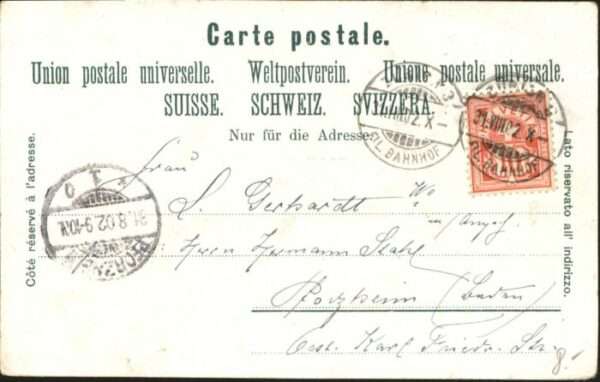 Carte postale.
Union postale universelle. Weltpostverein. Unione postale universale.
SUISSE. SCHWEIZ. SVIZZERA.
Nur für die Adresse.
Côté réservé à l'adresse.
Lato riservato all' indirizzo.
31.VIII.02.X-
L. BAHNHOF
31.VIII.02.X-
L. BAHNHOF
31.8.02.9-10N.
Frau
L. Gerhardt Wo
Herrn Hermann Stahl
Pforzheim (Baden)
Oest. Karl Friedr. Str. 8.